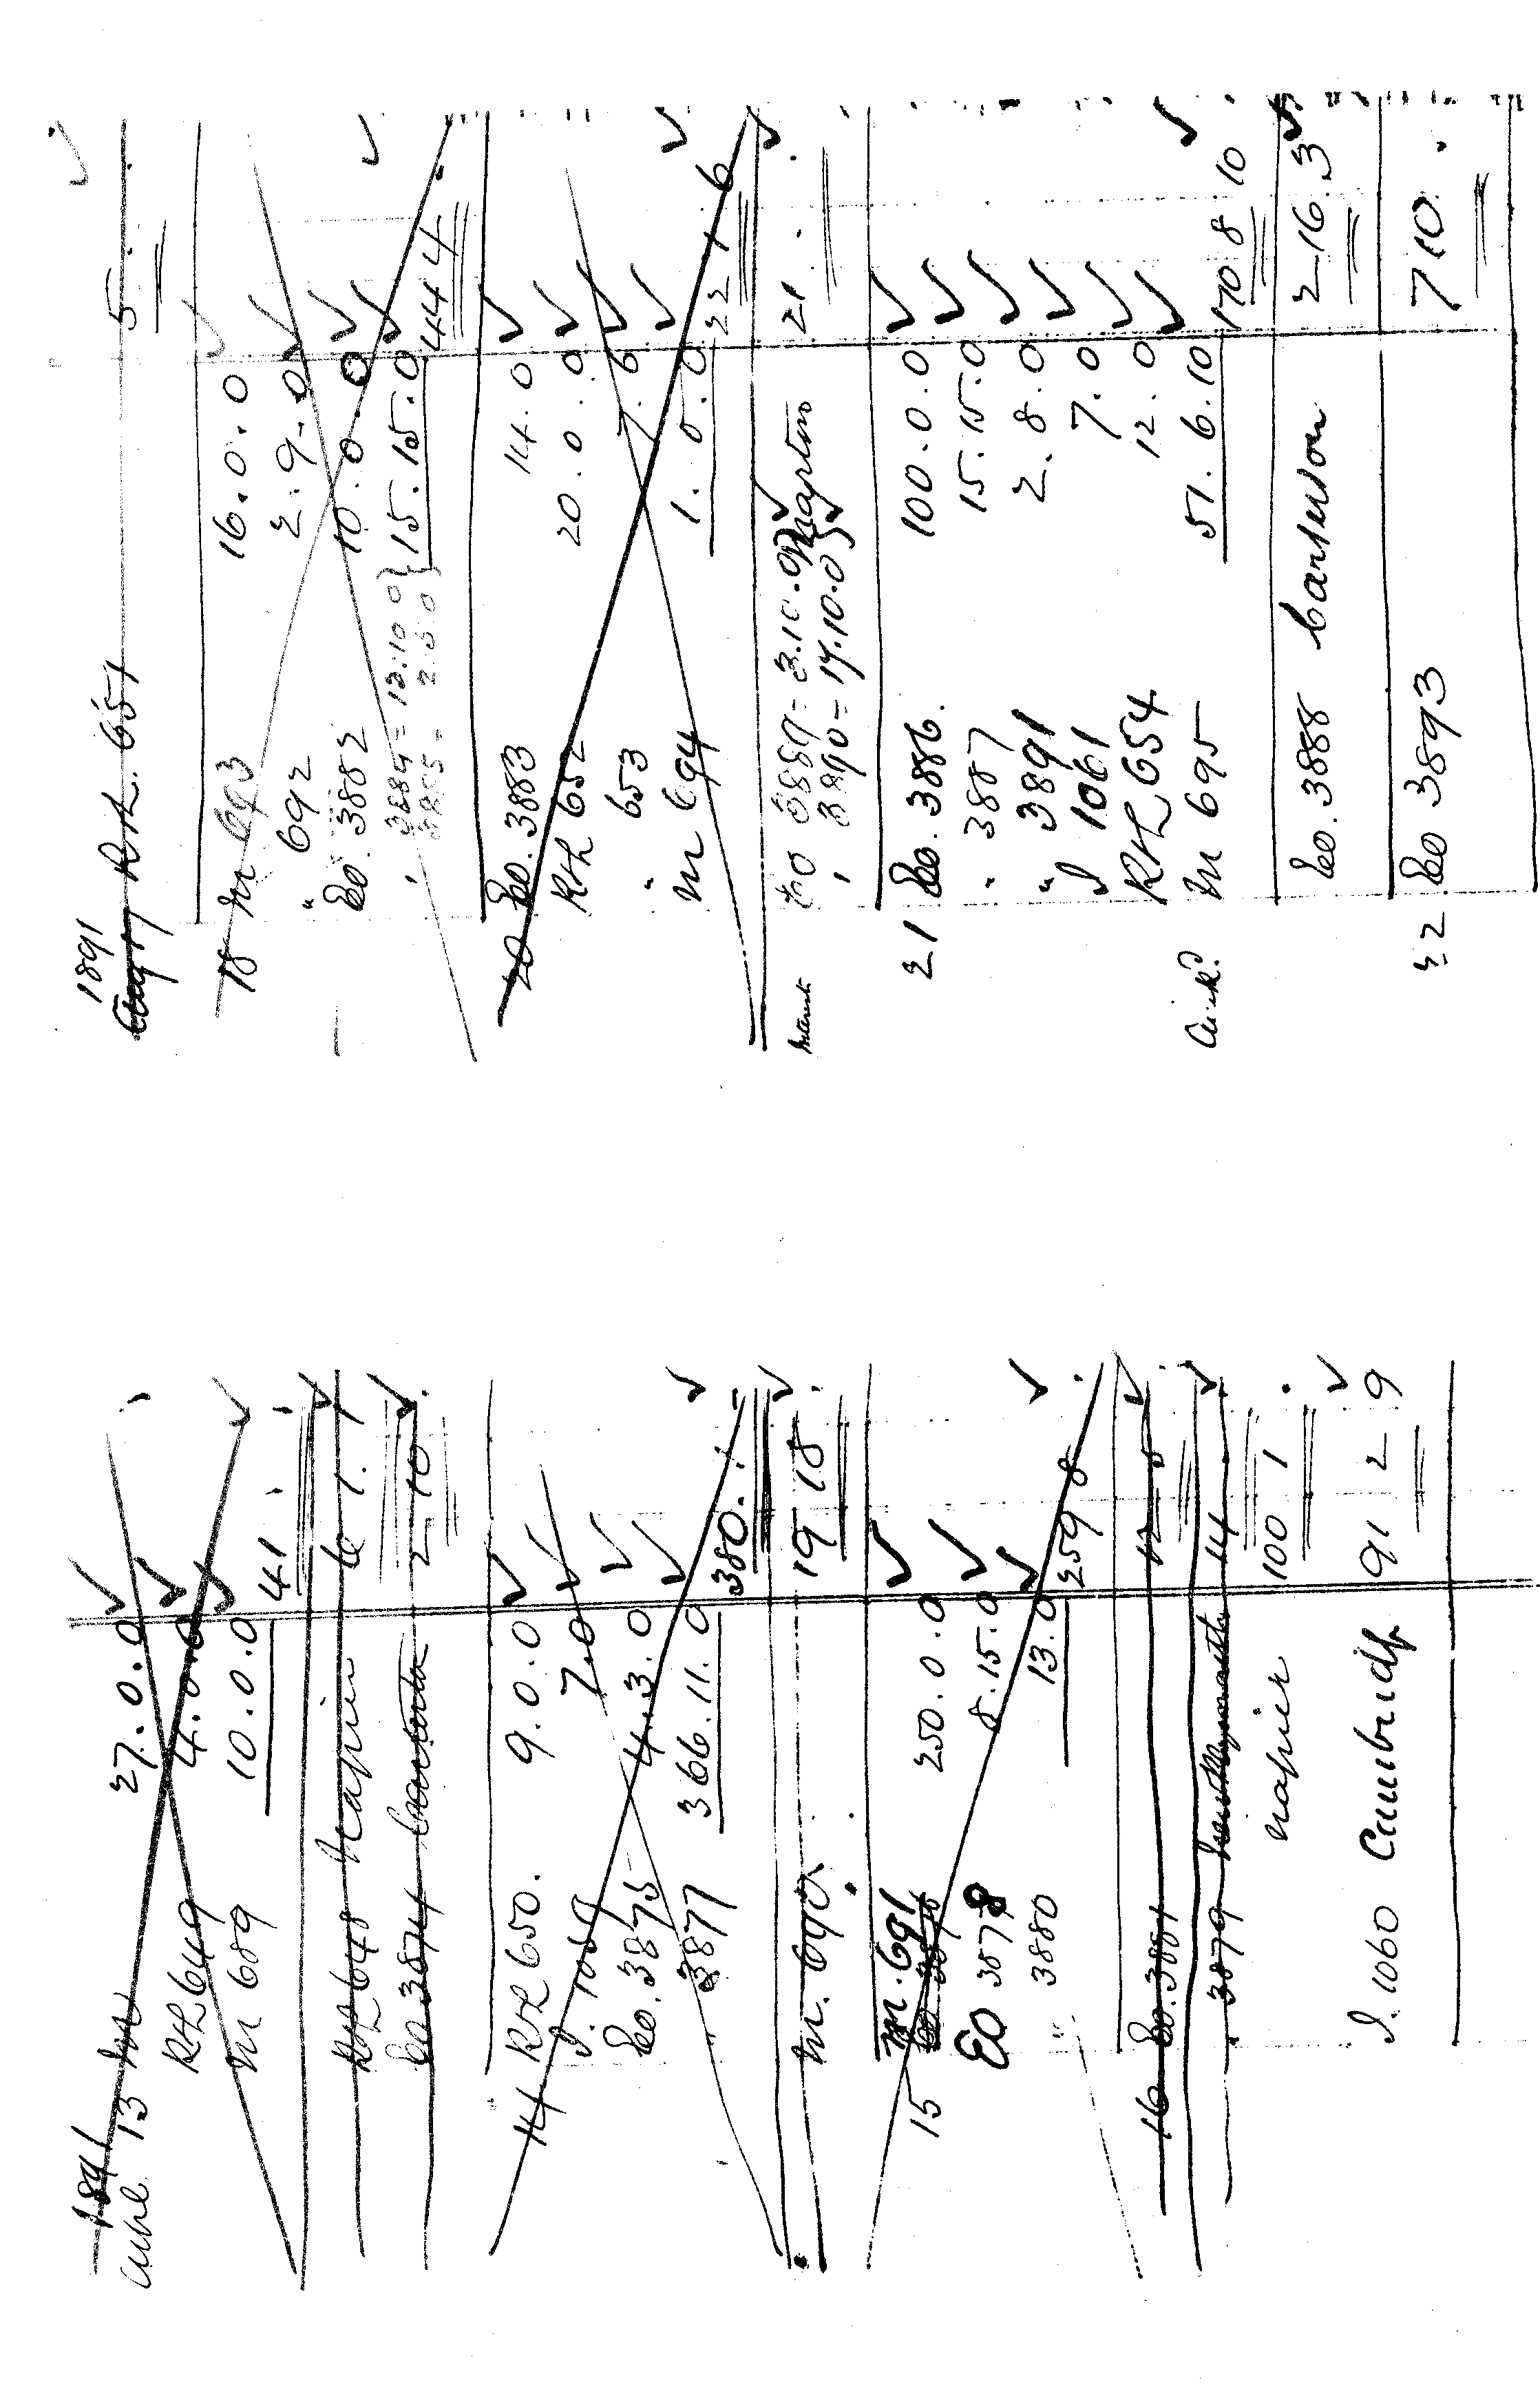 1891
13 M 27.0.0
RHL 649 4.0.0
M 689 10.0.0
41 . .
RHL 648 Napier 6 1. 1
Co 3874 2 10 .
14 RHL 650. 9.0.0
I. 1059 7.0
Co. 3875 4.3.0
" 3877 366.11.0
380. . .
M. 690. 19 18 .
15 M. 691 250.0.0
CO 3878 8.15.0
" 3880 13.0
259 8 .
16 Co. 3881 12 5 .
" 3879 14 .
Napier 100 1 .
I. 1060 Cambridge 91 2 9
1891
Aug 17 RHL. 651 5 . .
18 M 693 16.0.0
" 692 2.9.0
Co. 3882 10.0.0
" 3884 = 13.10 0 } 15.15.0
3885 = 2.5.0 }
44 4 .
20 Co. 3883 14.0
RHL 652 20.0.0
" 653 7.6
M 694 1.0.0
22 1 6
Interest CO 3889 = 3.10.0 } 21 . .
" 3890 = 17.10.0 }
21 Co. 3886. 100.0.0
" 3887 15.15.0
" 3891 2.8.0
I 1061 7.0
RHL 654 12.0
M 695 51.6.10
170 8 10
Co. 3888 2 16 3
22 Co 3893 7 10 .